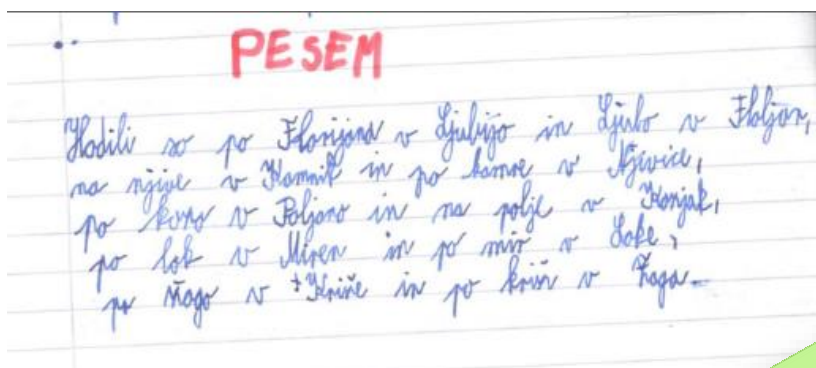 PESEM
Hodili so po Florijana v Ljubijo in Ljubo v Floljan,
na njive v Kamnik in po kamne v Njivice,
po konja v Poljano in na polje v Konjak,
po lok v Miren in po mir v Loke,
po žago v Križe in po križ v Žaga.